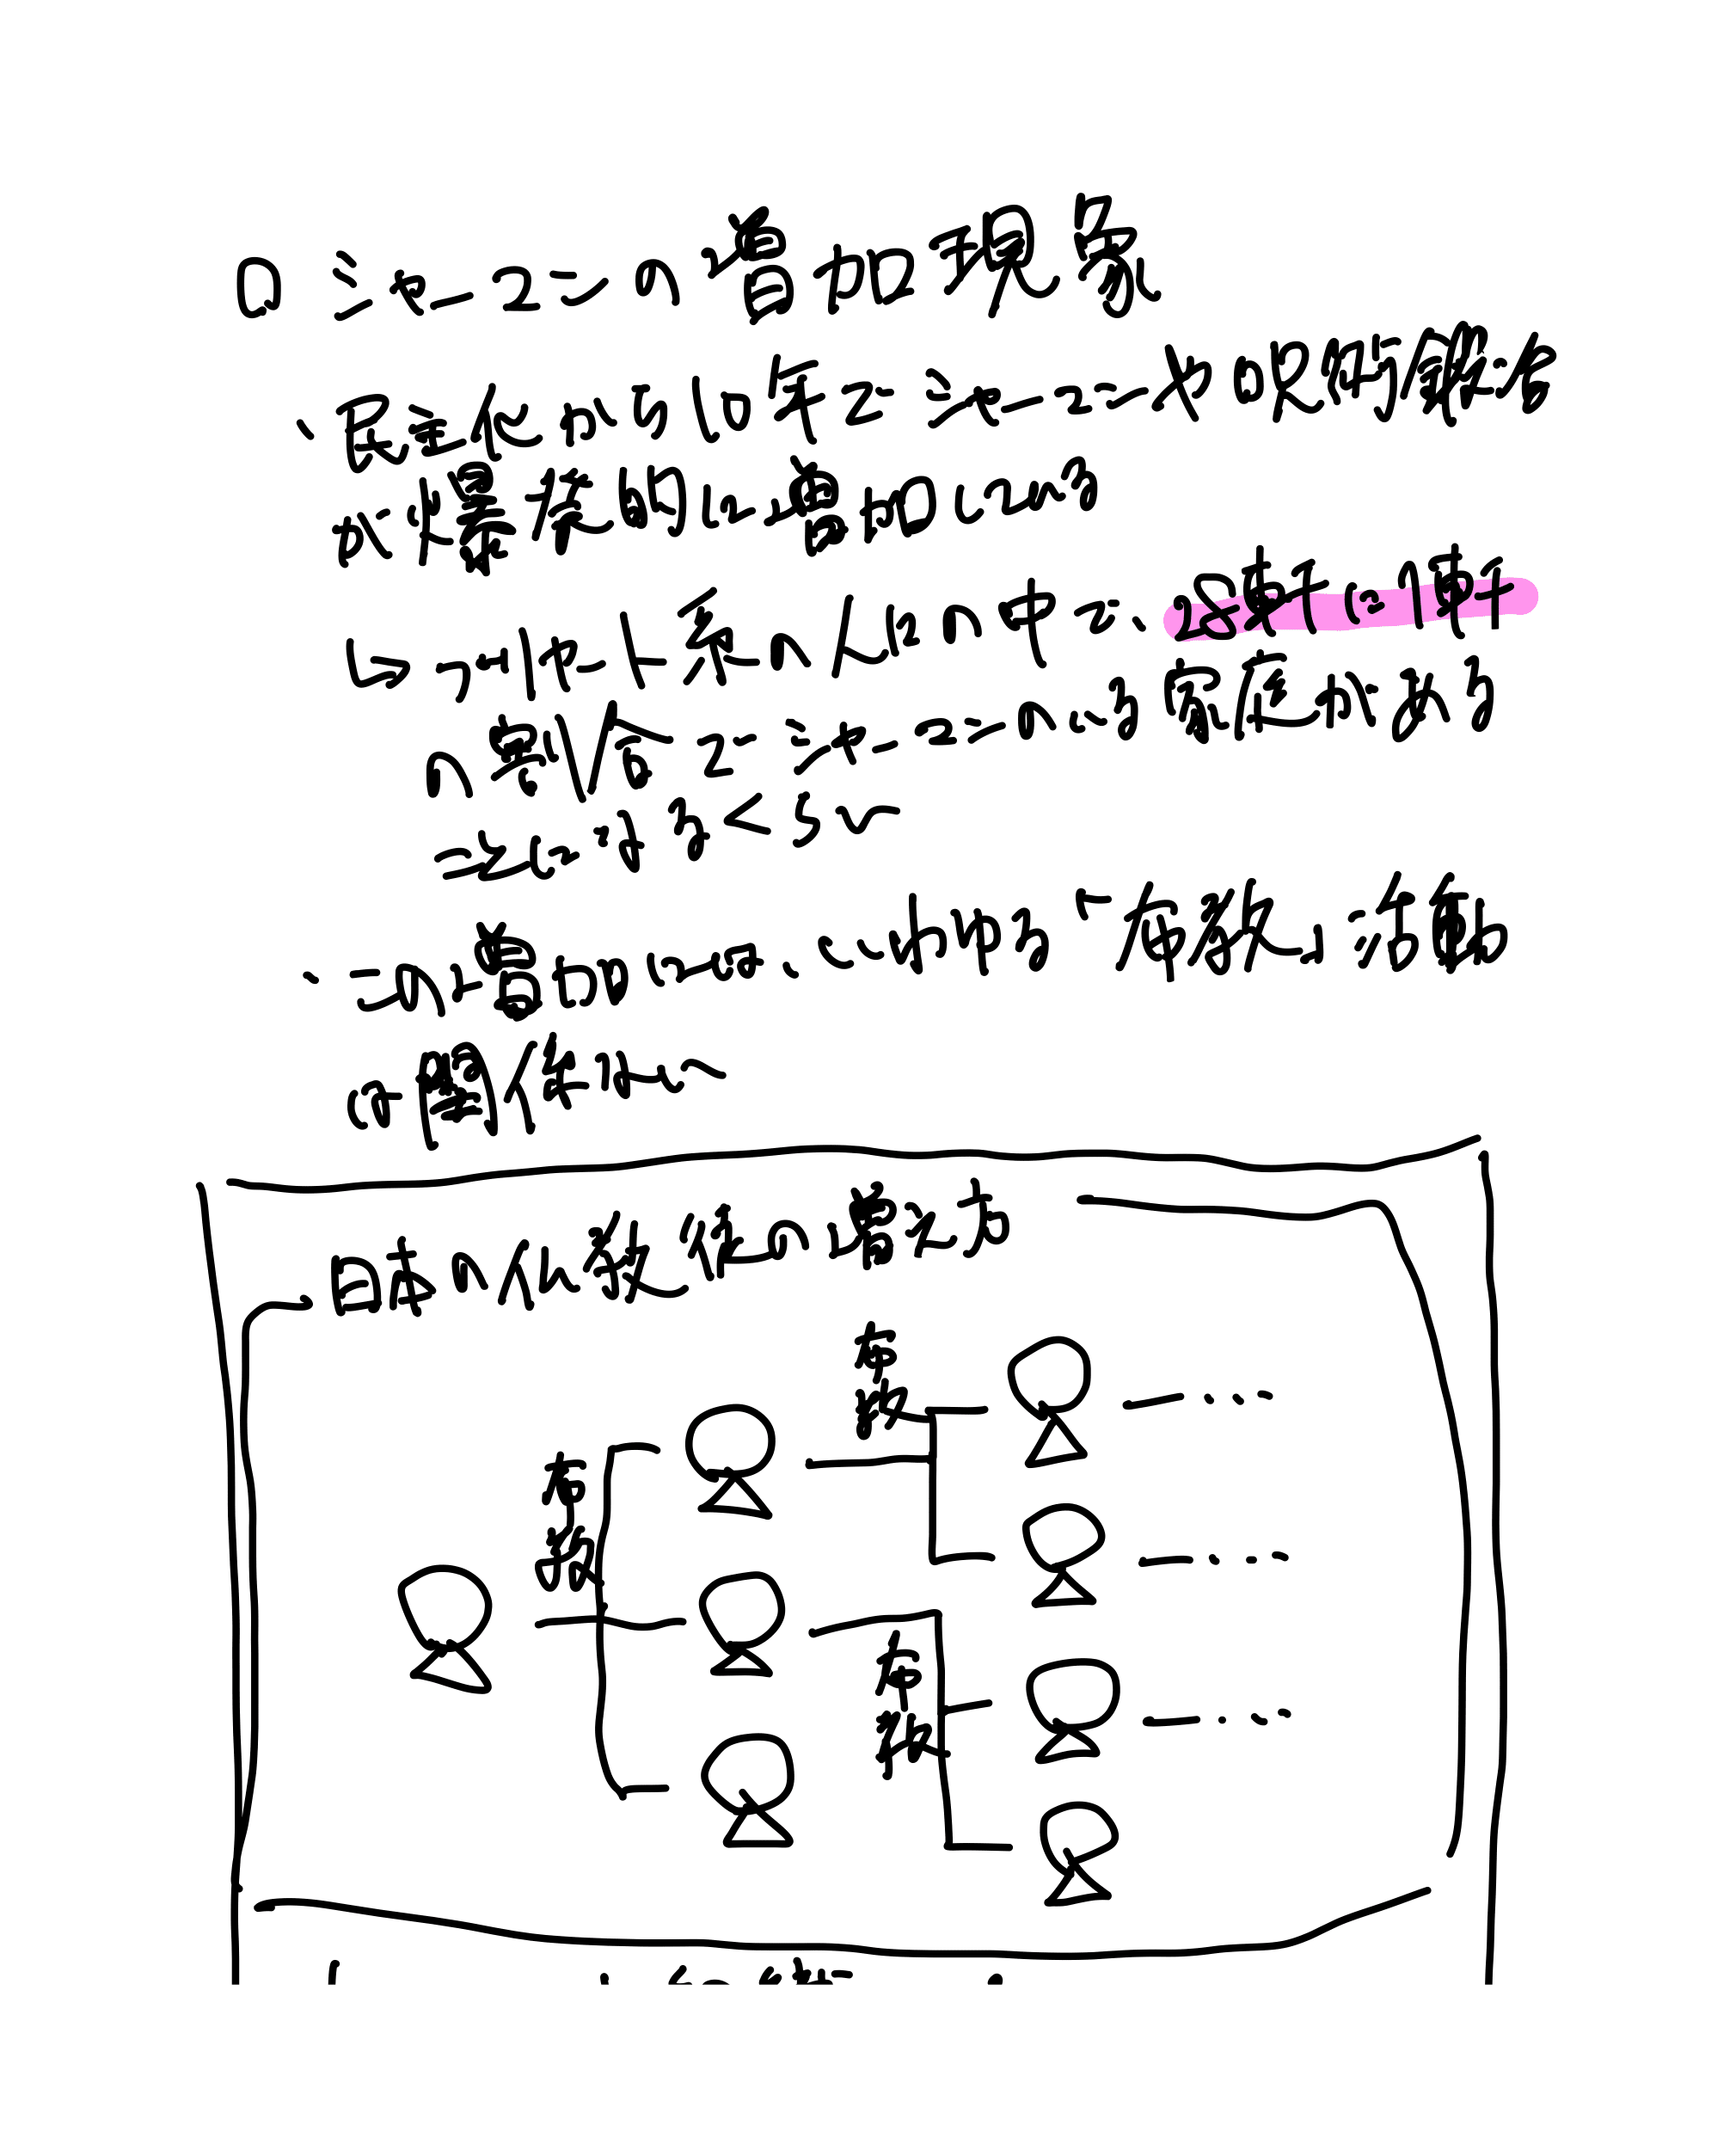 □シャーマンの増加現象
・民主化から10年でシャーマンや
が爆発的に増加している
↳ブリヤート系の人々の中で、8軒に1軒
の割合でシャーマンのいる家庭がある
ことになるくらい
・この増加には、いわゆる「布教」活動
の関係はない
日本の仏教徒の増え方
布教
布教
布教